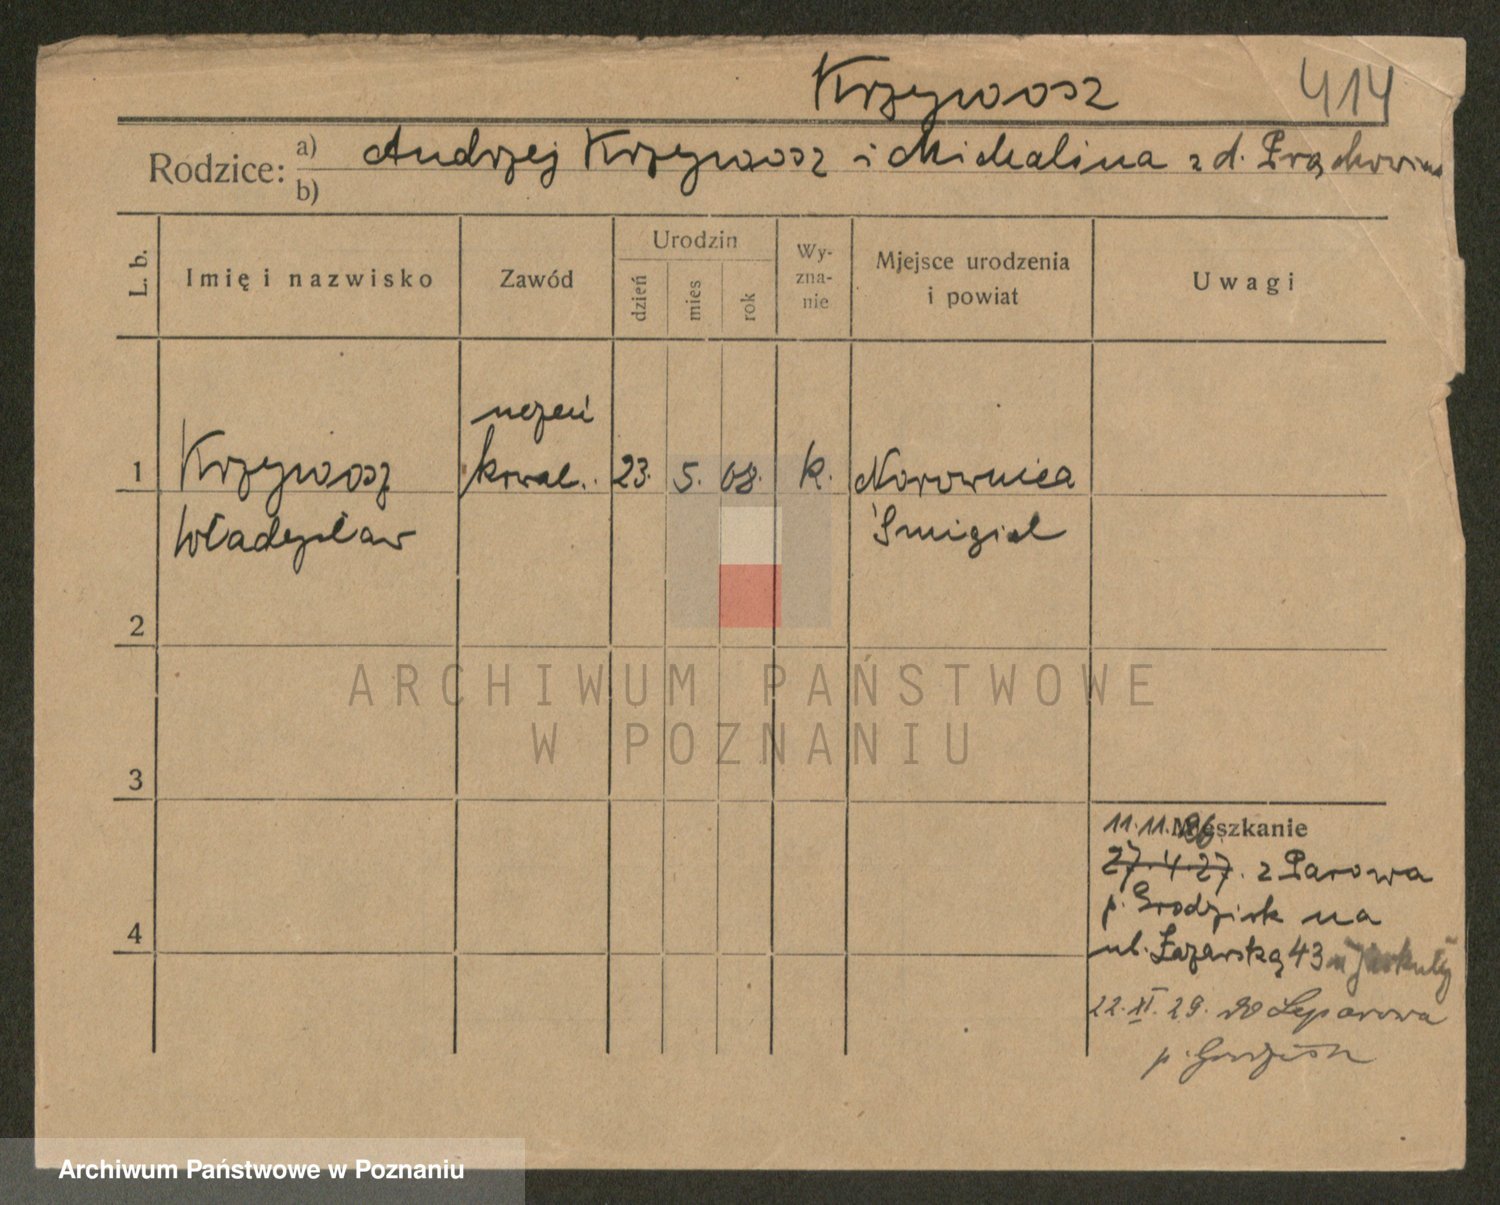 Krzywosz 414
Rodzice: a) Andrzej Krzywosz i Michalina z d. Prąchowiak
b)
L. b.
Imię i nazwisko
Zawód
Urodzin
dzień
mies
rok
Wy-
zna-
nie
Miejsce urodzenia
i powiat
Uwagi
uczeń
1 Krzywosz kowal. 23. 5. 08. k. Norownica
Władysław Śmigiel
2
3
4
Mieszkanie
11.11.26
27.4.27. z Parowa
p. Grodzisk na
ul. Łazarską 43 u
22.XI.29. do Łeparowa
p. Grodzisk
ARCHIWUM PAŃSTWOWE
W POZNANIU
Archiwum Państwowe w Poznaniu